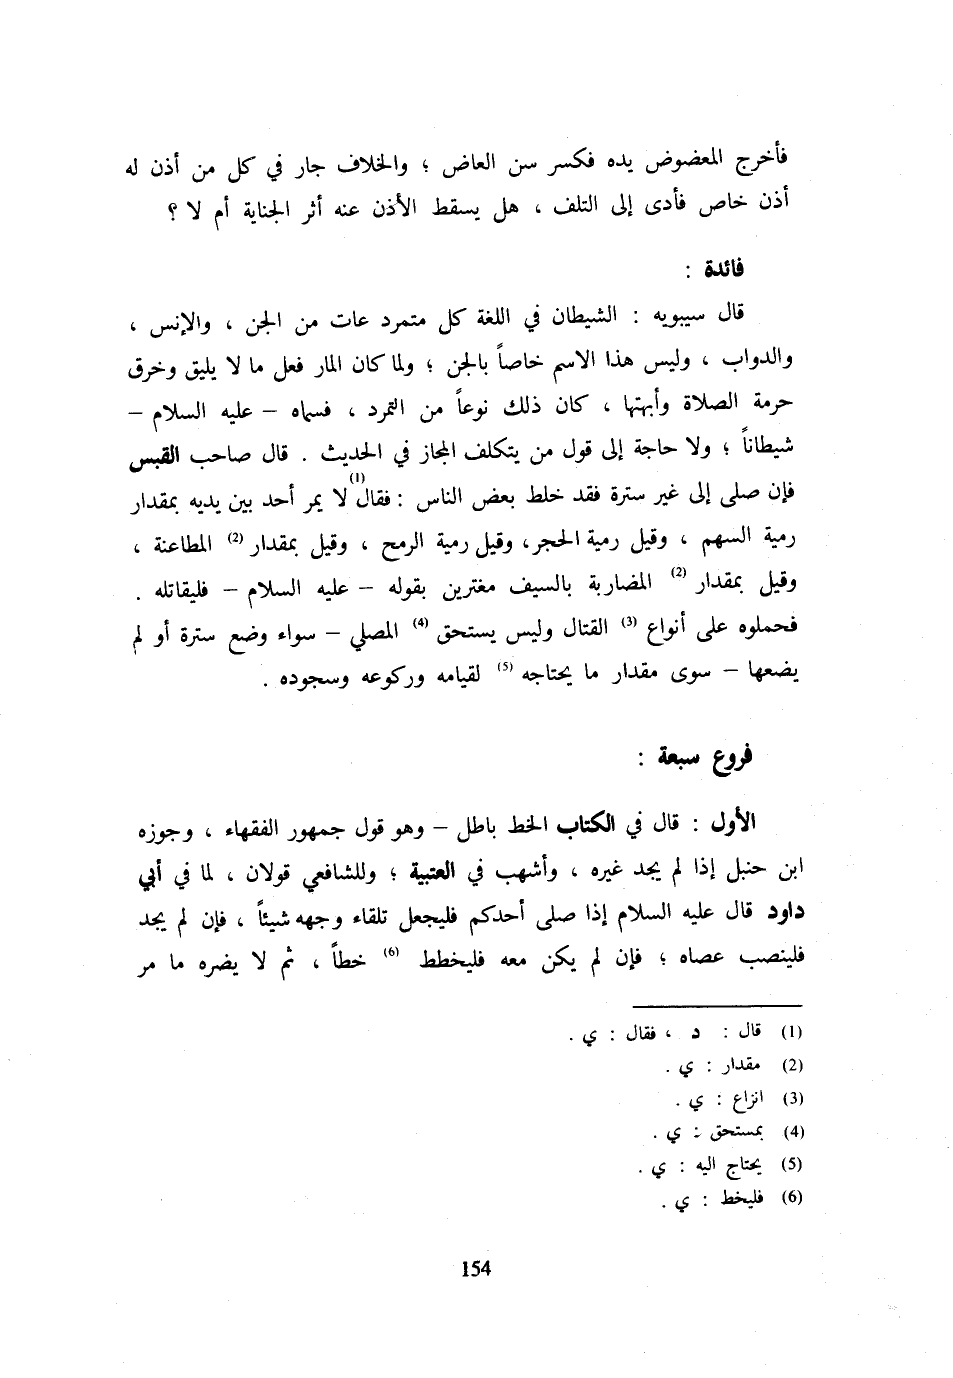 فأخرج المعضوض يده فكسر سن العاض ؛ والخلاف جار في كل من أذن له
أذن خاص فأدى إلى التلف ، هل يسقط الأذن عنه أثر الجناية أم لا ؟
فائدة :
قال سيبويه : الشيطان في اللغة كل متمرد عات من الجن ، والإنس ،
والدواب ، وليس هذا الاسم خاصاً بالجن ؛ ولما كان المار فعل ما لا يليق وخرق
حرمة الصلاة وأبهتها ، كان ذلك نوعاً من التمرد ، فسماه – عليه السلام –
شيطاناً ؛ ولا حاجة إلى قول من يتكلف المجاز في الحديث . قال صاحب القبس
فإن صلى إلى غير سترة فقد خلط بعض الناس : فقال(1) لا يمر أحد بين يديه بمقدار
رمية السهم ، وقيل رمية الحجر، وقيل رمية الرمح ، وقيل بمقدار (2) المطاعنة ،
وقيل بمقدار (2) المضاربة بالسيف مغترين بقوله – عليه السلام – فليقاتله .
فحملوه على أنواع (3) القتال وليس يستحق (4) المصلي – سواء وضع سترة أو لم
يضعها – سوى مقدار ما يحتاجه (5) لقيامه وركوعه وسجوده .
فروع سبعة :
الأول : قال في الكتاب الخط باطل – وهو قول جمهور الفقهاء ، وجوزه
ابن حنبل إذا لم يجد غيره ، وأشهب في العتبية ؛ وللشافعي قولان ، لما في أبي
داود قال عليه السلام إذا صلى أحدكم فليجعل تلقاء وجهه شيئاً ، فإن لم يجد
فلينصب عصاه ؛ فإن لم يكن معه فليخطط (6) خطاً ، ثم لا يضره ما مر
(1) قال : د ، فقال : ي .
(2) مقدار : ي .
(3) انزاع : ي .
(4) بمستحق : ي .
(5) يحتاج اليه : ي .
(6) فليخط : ي .
154